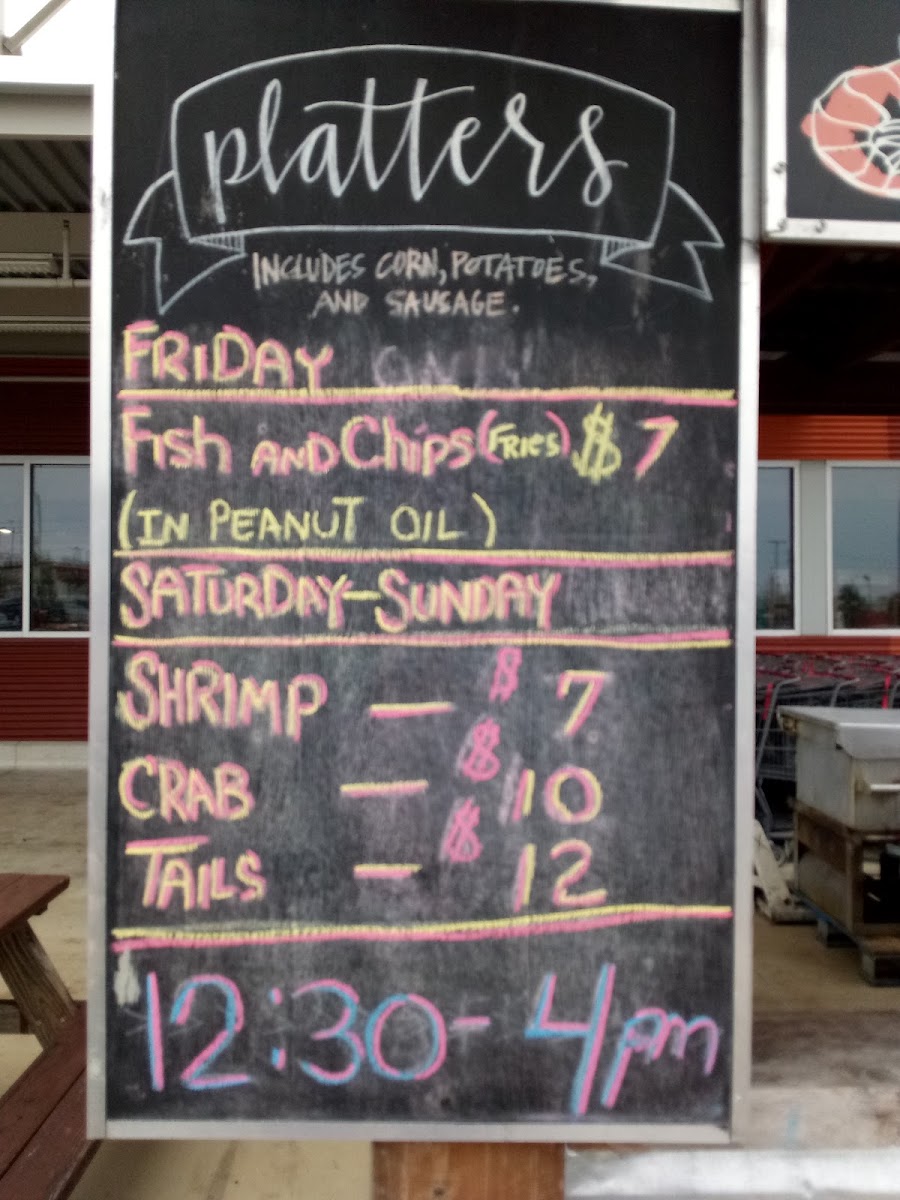 platters
INCLUDES CORN, POTATOES,
AND SAUSAGE.
FRIDAY
Fish AND Chips (FRIES) $ 7
(IN PEANUT OIL)
SATURDAY-SUNDAY
SHRIMP — $ 7
CRAB — $ 10
TAILS — $ 12
12:30 - 4pm